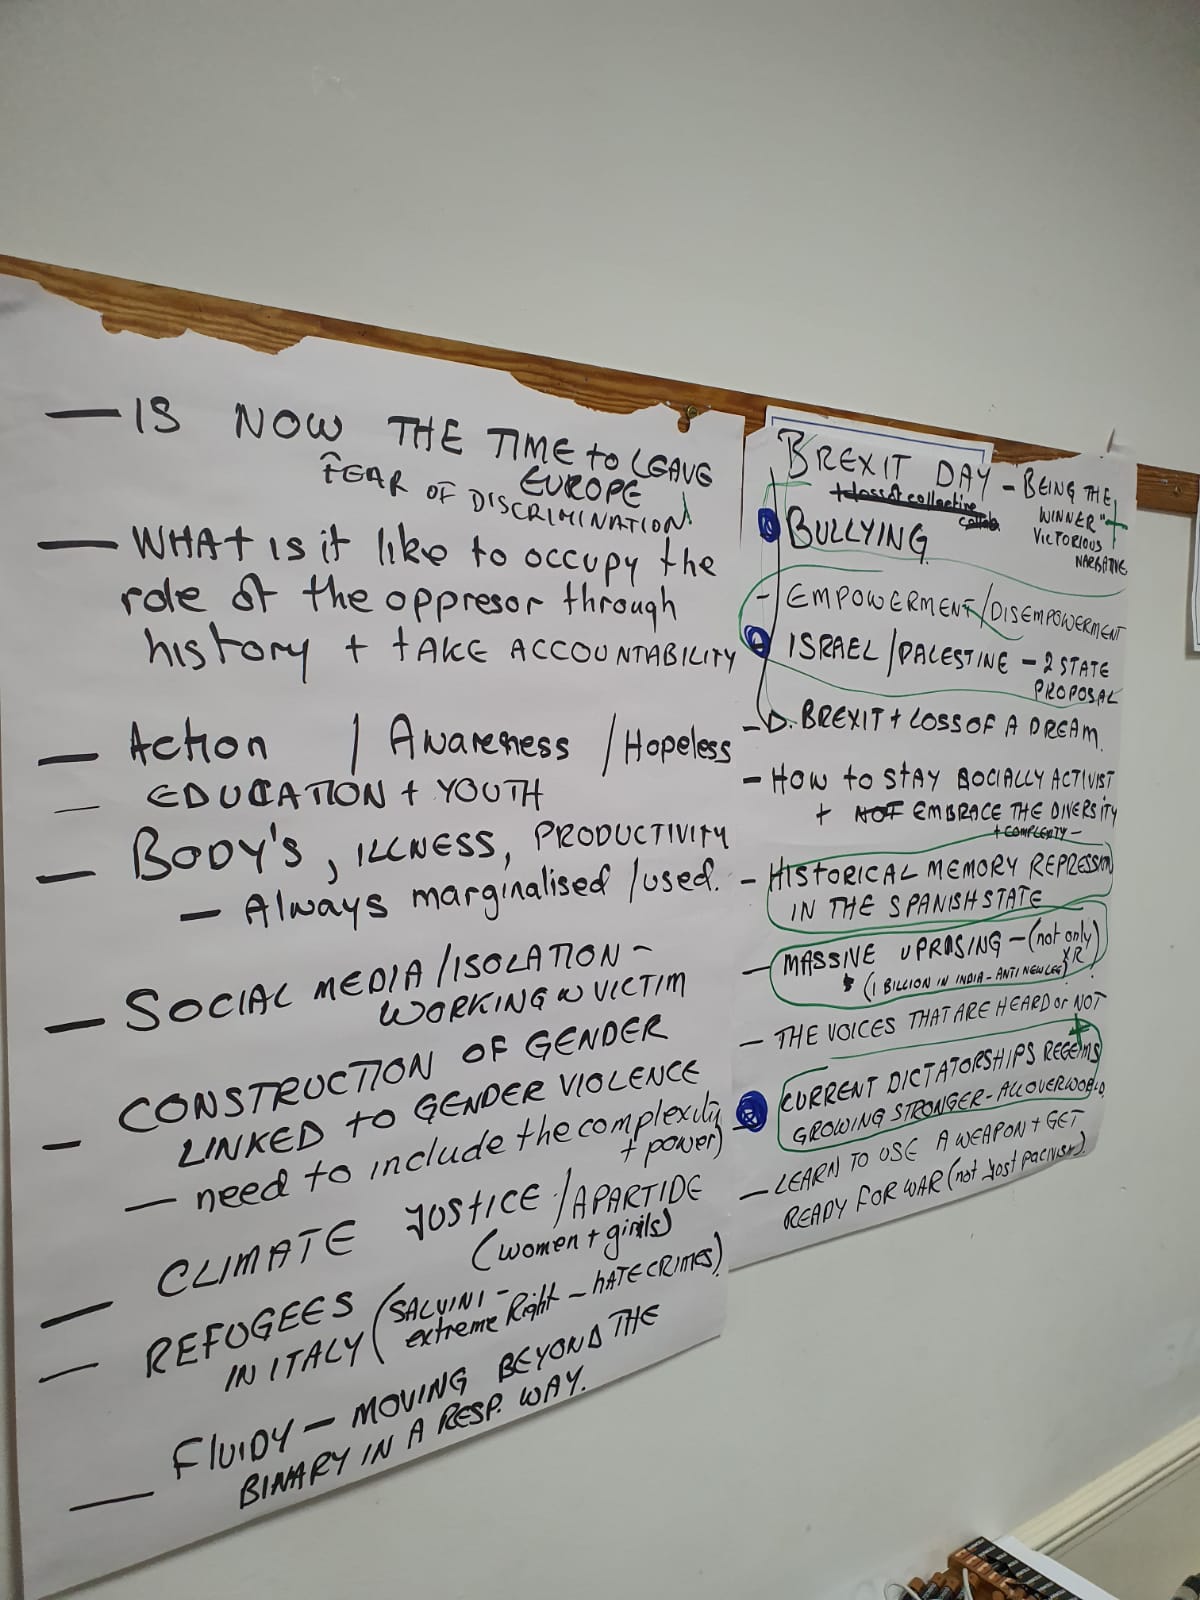 — IS NOW THE TIME to LEAVE
EUROPE
FEAR OF DISCRIMINATION
— WHAT IS it like to occupy the
role of the oppresor through
history + tAKE ACCOUNTABILITY
— Action / Awareness / Hopeless
— EDUCATION + YOUTH
— BODY'S, ILLNESS, PRODUCTIVITY
— Always marginalised / used.
— SOCIAL MEDIA / ISOLATION –
WORKING W VICTIM
— CONSTRUCTION OF GENDER
LINKED to GENDER VIOLENCE
— need to include the complexity
+ power)
— CLIMATE JUSTICE / APARTIDE
(women + girils)
— REFUGEES (SALVINI –
IN ITALY extreme Right – hATE CRIMES)
— FluIDY – MOVING BEYOND THE
BINARY IN A RESP. WAY.
BREXIT DAY – BEING THE
WINNER"
VICTORIOUS
NARRATIVE
+ loss of collective
BULLYING
- EMPOWERMENT / DISEMPOWERMENT
ISRAEL / PALESTINE – 2 STATE
PROPOSAL
- D. BREXIT + LOSS OF A DREAM.
- HOW to STAY SOCIALLY ACTIVIST
+ NOT EMBRACE THE DIVERSITY
+ COMPLEXITY –
- HISTORICAL MEMORY REPRESSION
IN THE SPANISH STATE
— MASSIVE UPRISING – (not only)
XR
(1 BILLION IN INDIA – ANTI NEW LEG)
— THE VOICES THAT ARE HEARD or NOT
- CURRENT DICTATORSHIPS REGEIMS
GROWING STRONGER – ALL OVER WORLD.
— LEARN TO USE A WEAPON + GET
READY FOR WAR (not Jost pacivism).